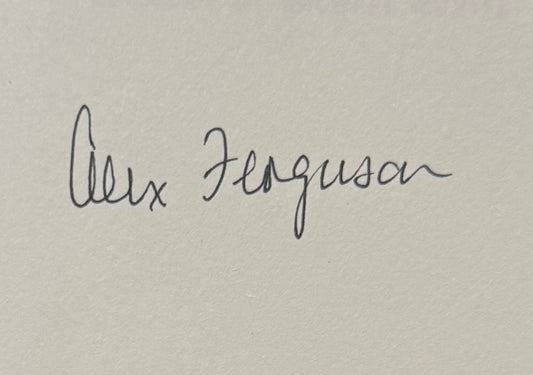 Alex Ferguson